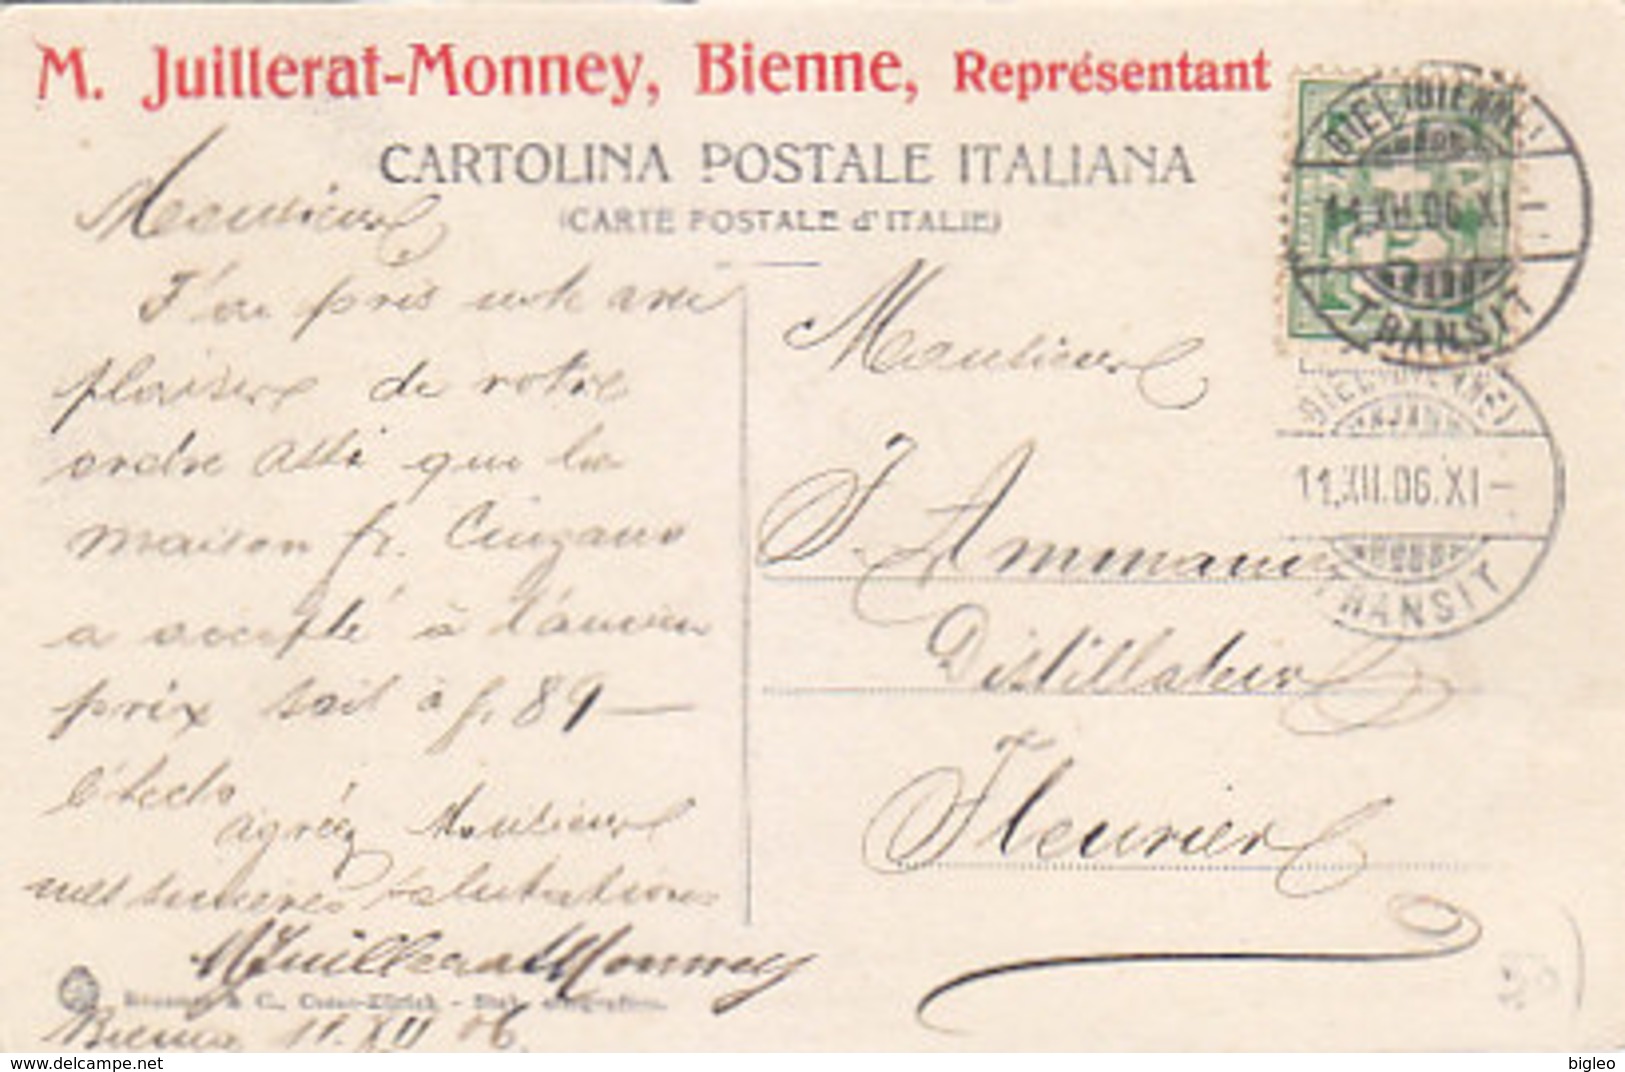 M. Juillerat-Monney, Bienne, Représentant
CARTOLINA POSTALE ITALIANA
(CARTE POSTALE d'ITALIE)
Monsieur
J'ai pris note avec
plaisir de votre
ordre que la
maison fr. Cinzano
a accepté à l'ancien
prix soit à fr. 89 —
agréez Monsieur
mes sincères salutations
M Juillerat Monney
Bienne 11. XII 06
Monsieur
J. Ammann
Distillateur
Fleurier
BIEL (BIENNE)
11.XII.06.XI-
TRANSIT
5
BIEL (BIENNE)
11.XII.06.XI-
TRANSIT
www.delcampe.net
bigleo